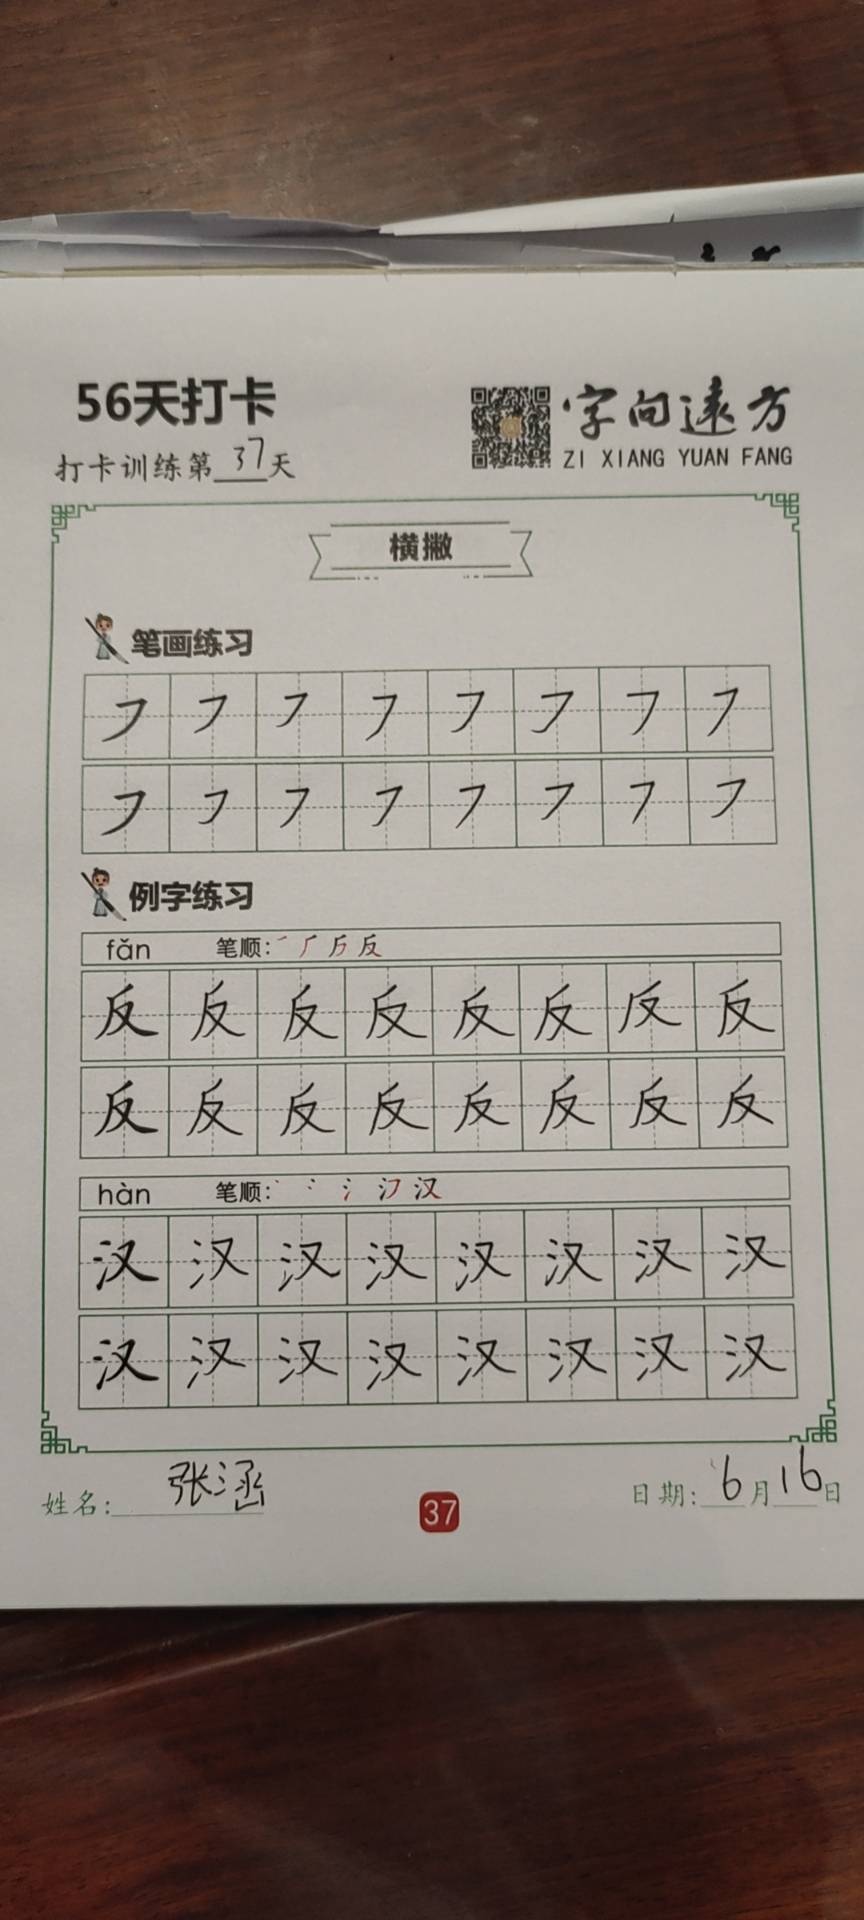 56天打卡
字向远方
打卡训练第37天
ZI XIANG YUAN FANG
横撇
笔画练习
㇇ ㇇ ㇇ ㇇ ㇇ ㇇ ㇇ ㇇
㇇ ㇇ ㇇ ㇇ ㇇ ㇇ ㇇ ㇇
例字练习
fǎn 笔顺: ㇀ 厂 反
反 反 反 反 反 反 反 反
反 反 反 反 反 反 反 反
hàn 笔顺: 丶 冫 氵 汉
汉 汉 汉 汉 汉 汉 汉 汉
汉 汉 汉 汉 汉 汉 汉 汉
姓名:张涵
37
日期:6月16日